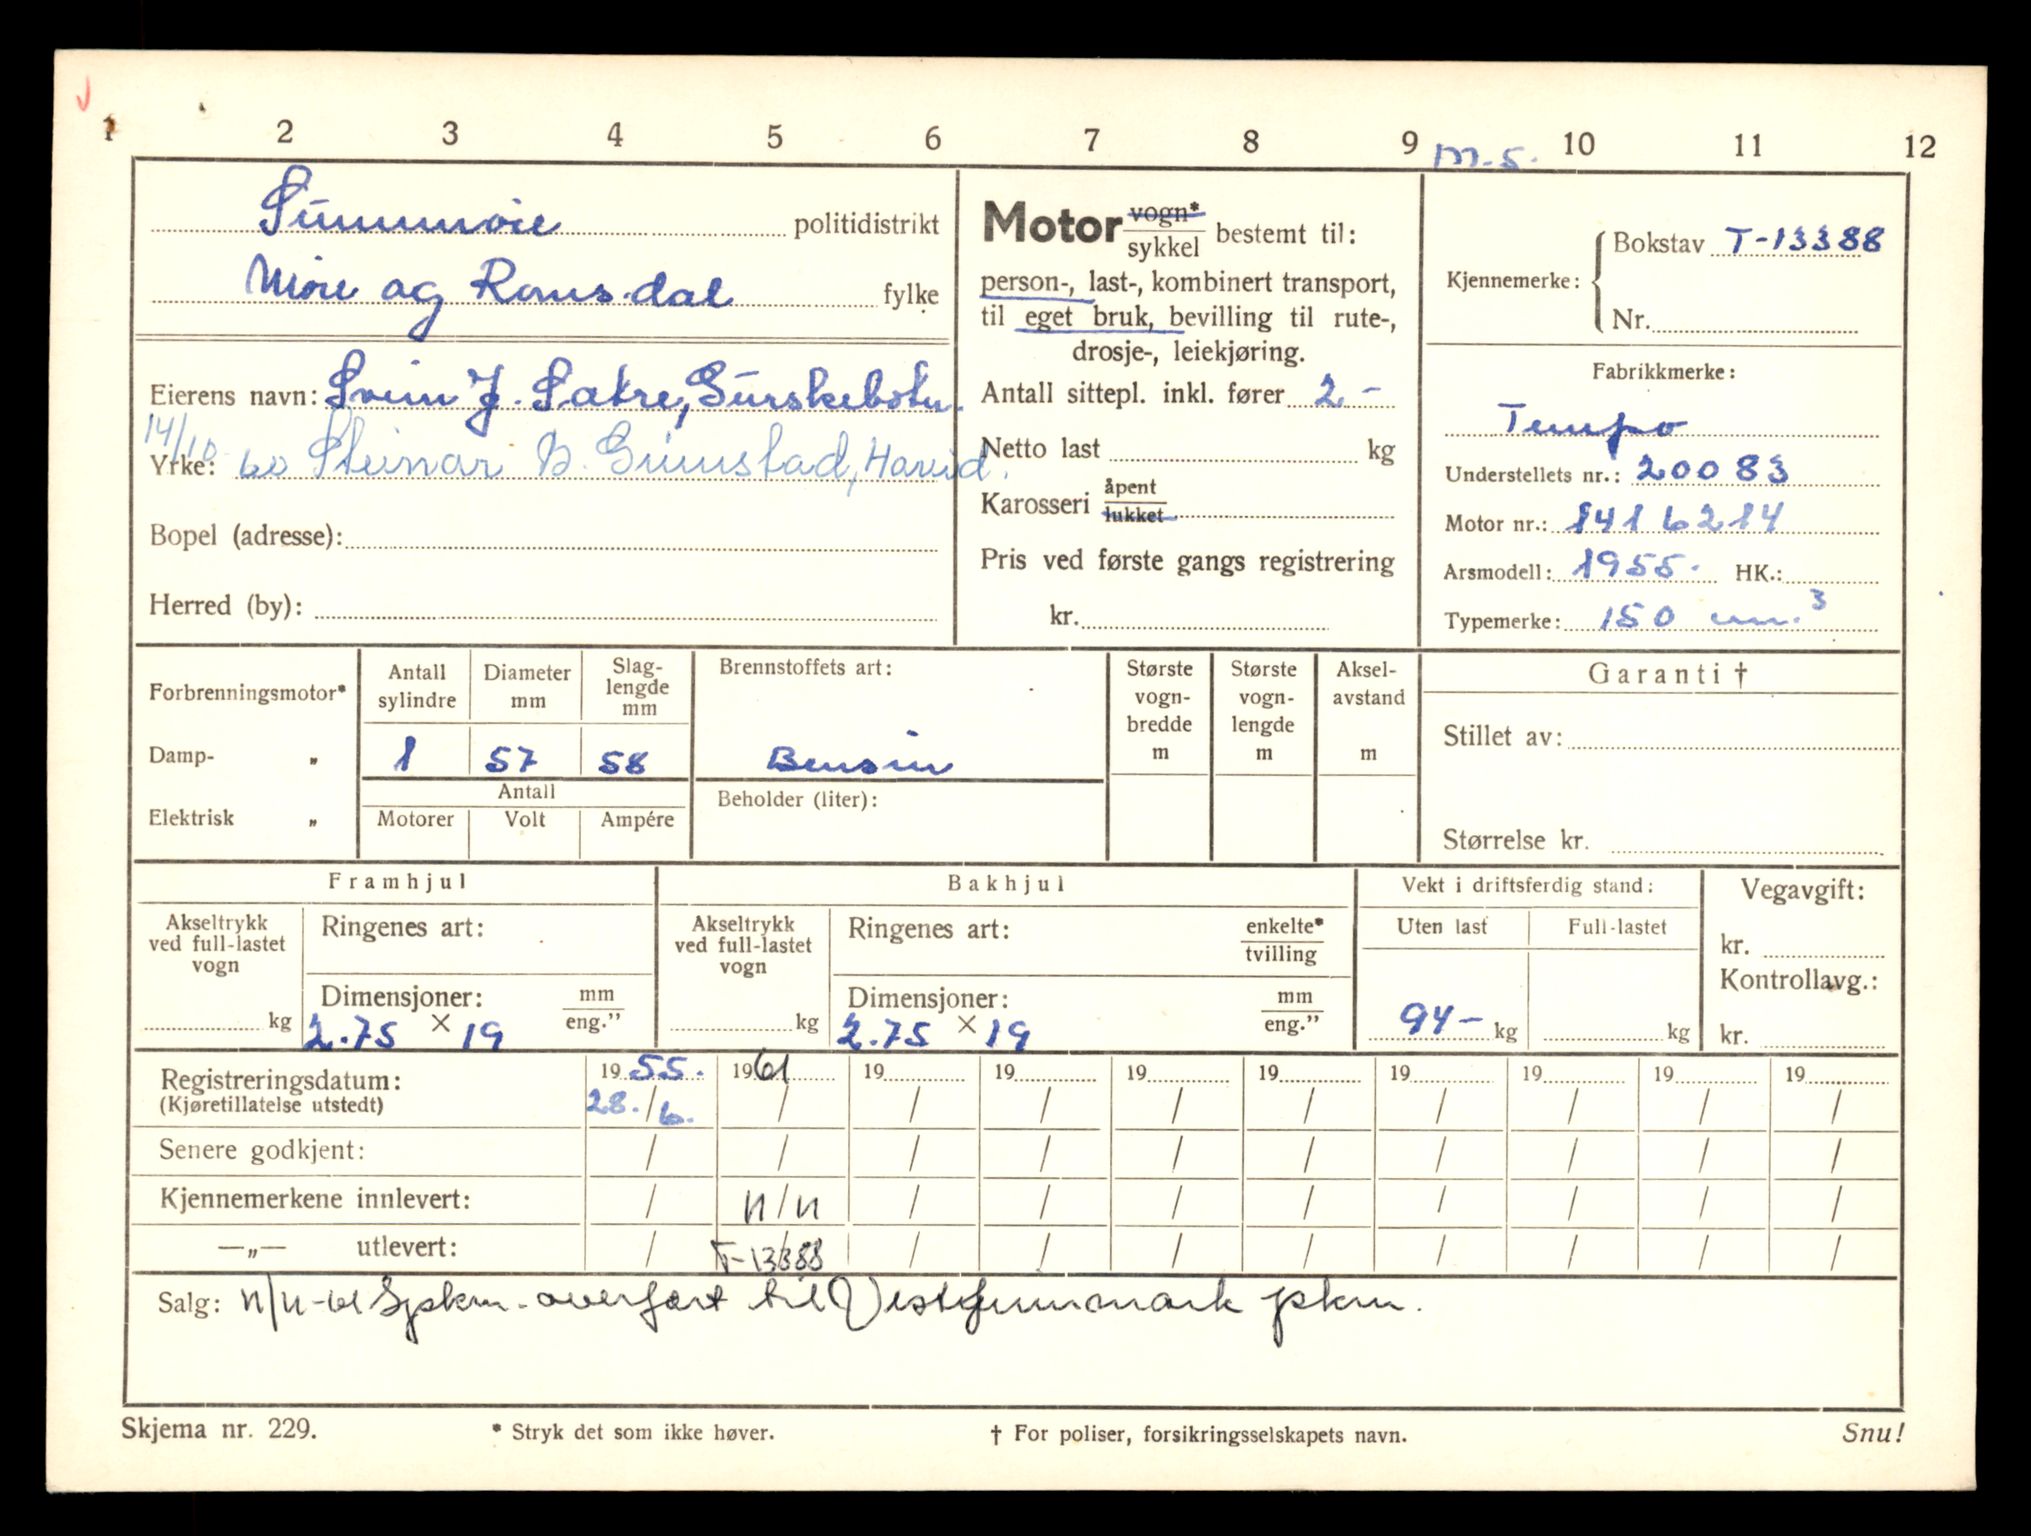 1 2 3 4 5 6 7 8 9 10 11 12
m.s.
Sunnmøre politidistrikt
Møre og Romsdal fylke
Eierens navn: Svein J. Sætre, Gurskebotn.
14/10-60 Steinar B. Grimstad, Hareid.
Yrke:
Bopel (adresse):
Herred (by):
Motor vogn* / sykkel bestemt til:
person-, last-, kombinert transport,
til eget bruk, bevilling til rute-,
drosje-, leiekjøring.
Antall sittepl. inkl. fører 2 -
Netto last kg
Karosseri åpent / lukket
Pris ved første gangs registrering
kr.
Kjennemerke: Bokstav T-13388
Nr.
Fabrikkmerke:
Tempo
Understellets nr.: 20083
Motor nr.: 1416214
Arsmodell: 1955. HK.:
Typemerke: 150 cm.³
Forbrenningsmotor*
Damp- „
Elektrisk „
Antall sylindre Diameter mm Slag-lengde mm
1 57 58
Antall
Motorer Volt Ampére
Brennstoffets art:
Bensin
Beholder (liter):
Største vogn-bredde m
Største vogn-lengde m
Aksel-avstand m
Garanti †
Stillet av:
Størrelse kr.
Framhjul
Akseltrykk ved full-lastet vogn
kg
Ringenes art:
Dimensjoner: mm / eng.”
2.75 × 19
Bakhjul
Akseltrykk ved full-lastet vogn
kg
Ringenes art: enkelte* / tvilling
Dimensjoner: mm / eng.”
2.75 × 19
Vekt i driftsferdig stand:
Uten last Full-lastet
94 - kg kg
Vegavgift:
kr.
Kontrollavg.:
kr.
Registreringsdatum: 19 55. 19 61 19 19 19 19 19 19 19 19
(Kjøretillatelse utstedt) 28. / 6. / / / / / / / / /
Senere godkjent: / / / / / / / / / /
Kjennemerkene innlevert: / 11/11 / / / / / / / /
—„— utlevert: / T-13388 / / / / / / / /
Salg: 11/11-61 Sjpkm. overført til Vestfinnmark pkm.
Skjema nr. 229. * Stryk det som ikke høver. † For poliser, forsikringsselskapets navn. Snu!